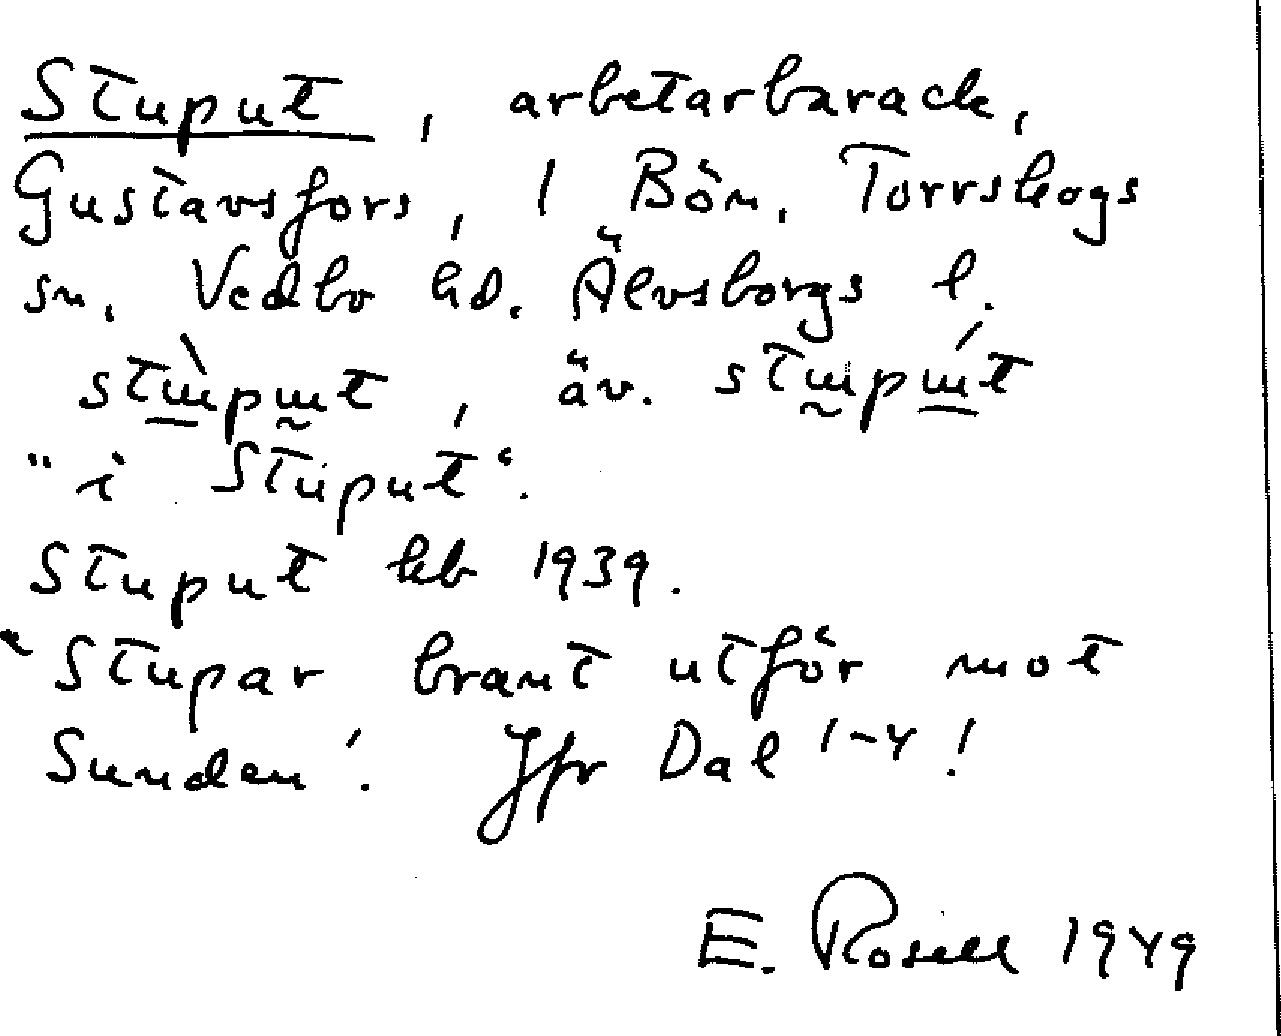 Stuput, arbetarbarack,
Gustavsfors, 1 Bön, Torrskogs
sn, Vedbo hd. Älvsborgs l.
stɯ̀pɯt, äv. stɯpɯ́t
"i Stuput".
Stuput kb 1939.
"Stupar brant utför mot
Sunden". Jfr Dal 1-4!
E. Rosell 1949